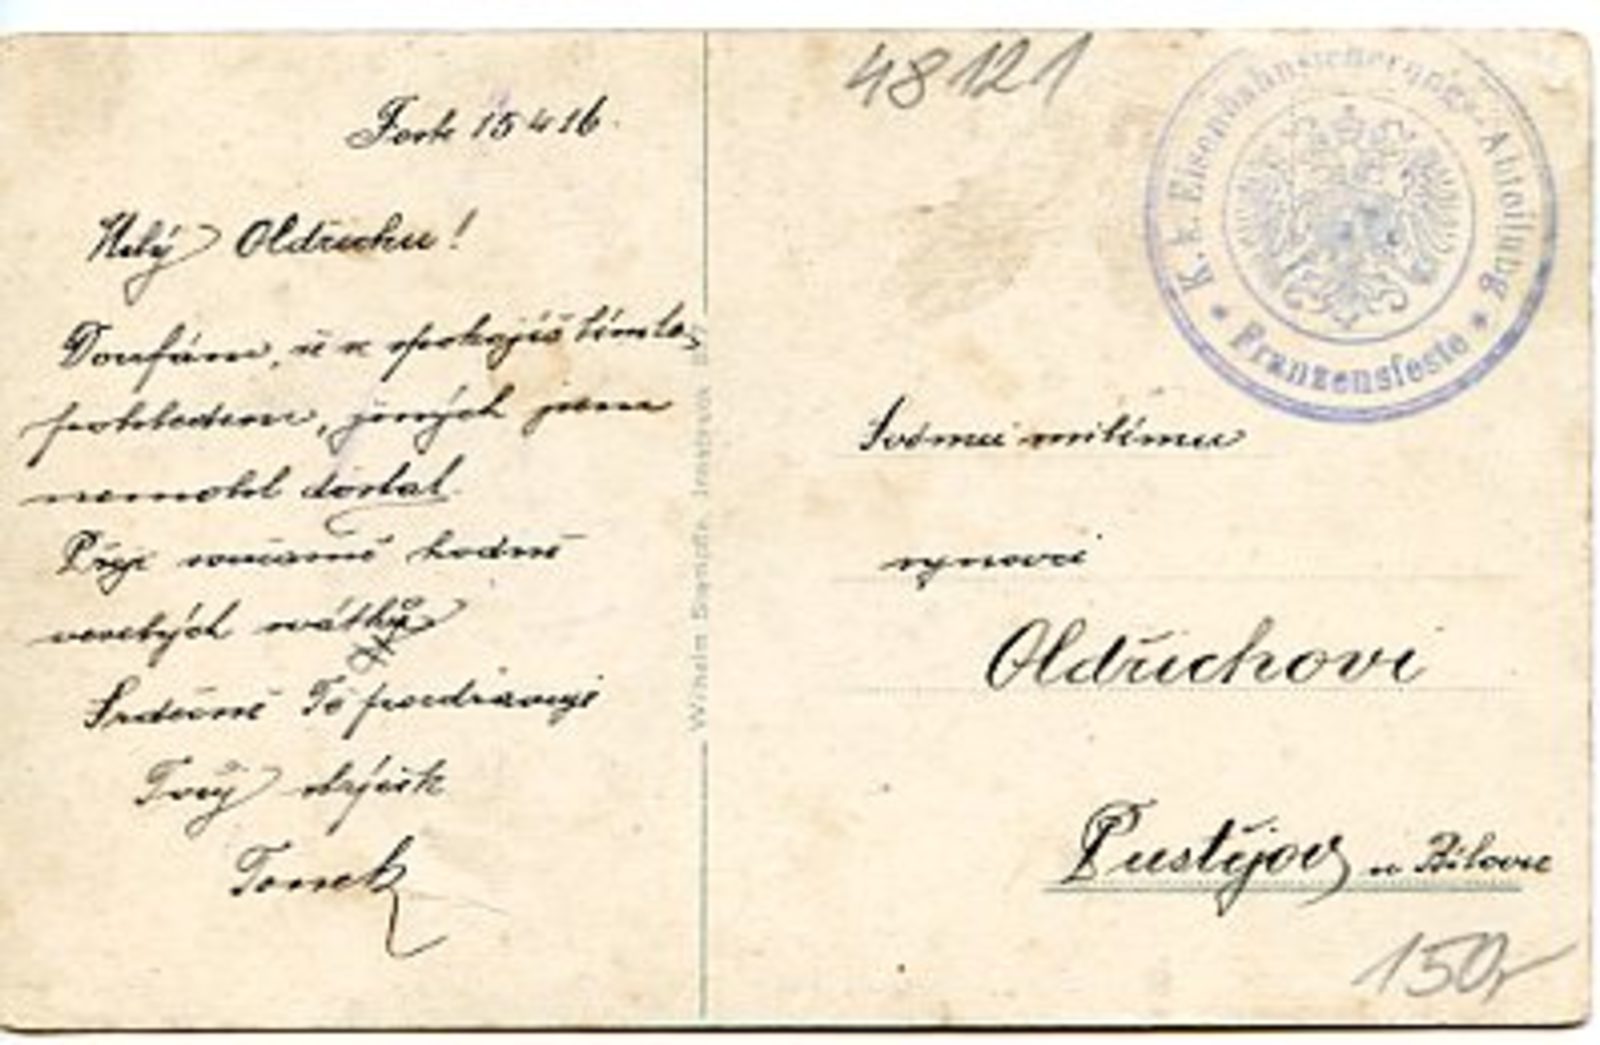 15 4 16.
Milý Oldřichu!
Doufám, že se spokojíš tímto
pohledem, jiných jsem
nemohl dostat.
Přeje současně hodně
veselých svátků
Srdečně Tě pozdravuje
Tvůj strýček
Tonek
Wilhelm Stempfle, Innsbruck
48121
K. k. Eisenbahnsicherungs-Abteilung
* Franzensfeste *
Svému milému
synovci
Oldřichovi
Pustějov u Bílovce
150,-